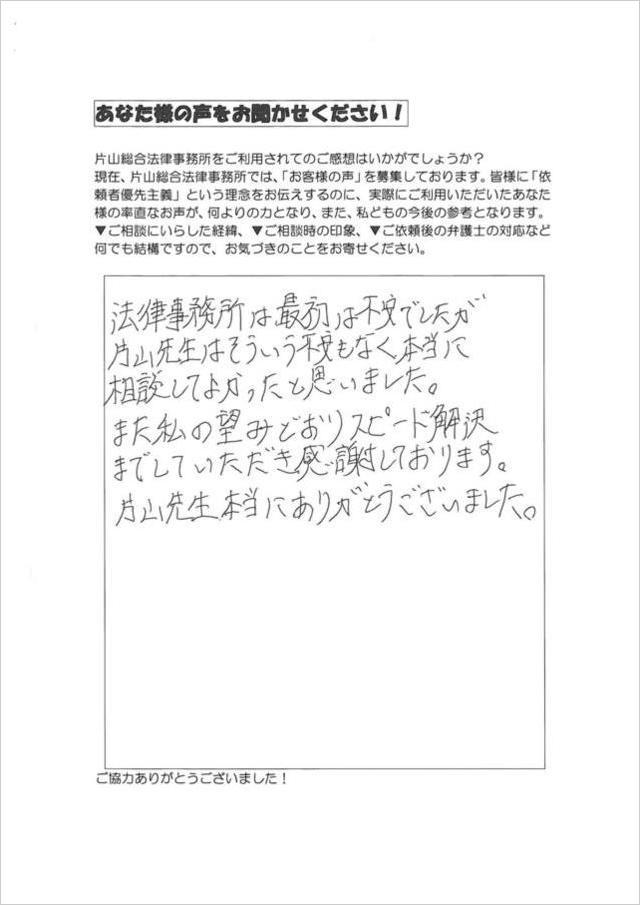 あなた様の声をお聞かせください！
片山総合法律事務所をご利用されてのご感想はいかがでしょうか？
現在、片山総合法律事務所では、「お客様の声」を募集しております。皆様に「依
頼者優先主義」という理念をお伝えするのに、実際にご利用いただいたあなた
様の率直なお声が、何よりの力となり、また、私どもの今後の参考となります。
▼ご相談にいらした経緯、▼ご相談時の印象、▼ご依頼後の弁護士の対応など
何でも結構ですので、お気づきのことをお寄せください。
法律事務所は最初は不安でしたが
片山先生はそういう不安もなく本当に
相談してよかったと思いました。
また私の望みどおりスピード解決
までしていただき感謝しております。
片山先生本当にありがとうございました。
ご協力ありがとうございました！